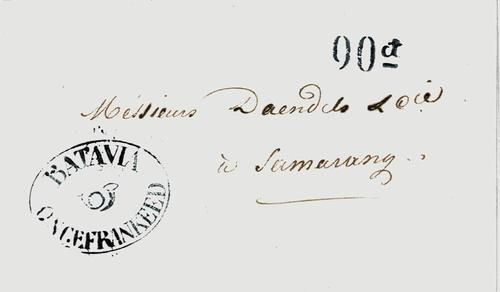 90ct
Messieurs Daendels & Cie
à Samarang.
BATAVIA
ONGEFRANKEERD